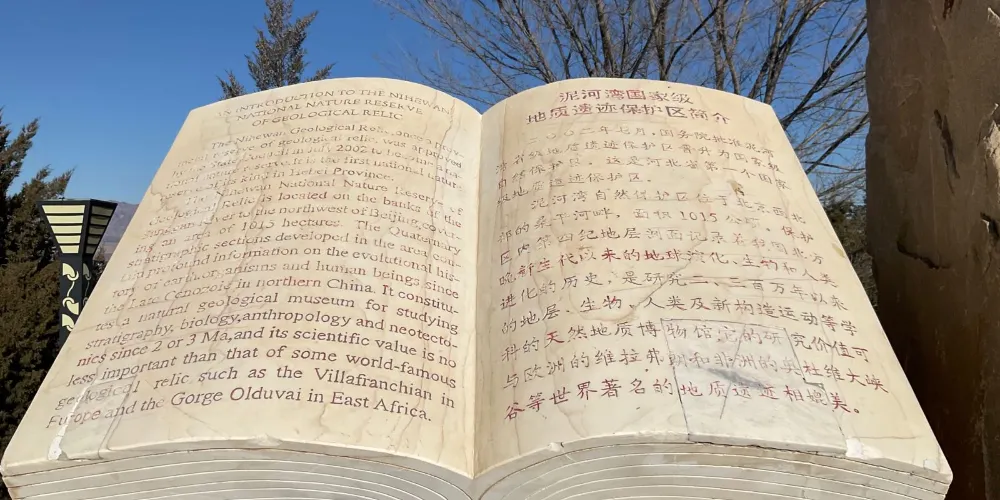 INTRODUCTION TO THE NIHEWAN
NATIONAL NATURE RESERVE
OF GEOLOGICAL RELIC
The Nihewan Geological Relic,
of geological relic, was approved
in July 2002 to
It is the first national
its kind in Hebei Province.
Nihewan National Nature Reserve of
Relic is located on the banks of the
to the northwest of Beijing, cover-
ing an area of 1015 hectares. The Quaternary
stratigraphic sections developed in the area con-
tain profound information on the evolutional his-
tory of earth, organisms and human beings since
the Late Cenozoic in northern China. It constitu-
tes a natural geological museum for studying
stratigraphy, biology, anthropology and neotecto-
nics since 2 or 3 Ma, and its scientific value is no
less important than that of some world-famous
geological relic such as the Villafranchian in
Europe and the Gorge Olduvai in East Africa.
泥河湾国家级
地质遗迹保护区简介
二〇〇二年七月，国务院批准泥河
湾省级地质遗迹保护区晋升为国家级
自然保护区，这是河北省第一个国家
级地质遗迹保护区。
泥河湾自然保护区位于北京西北
部的桑干河畔，面积1015公顷。保护
区内第四纪地层剖面记录着我国北方
晚新生代以来的地球演化、生物和人类
进化的历史，是研究二、三百万年以来
的地层、生物、人类及新构造运动等学
科的天然地质博物馆，它的研究价值可
与欧洲的维拉弗朗和非洲的奥杜维大峡
谷等世界著名的地质遗迹相媲美。